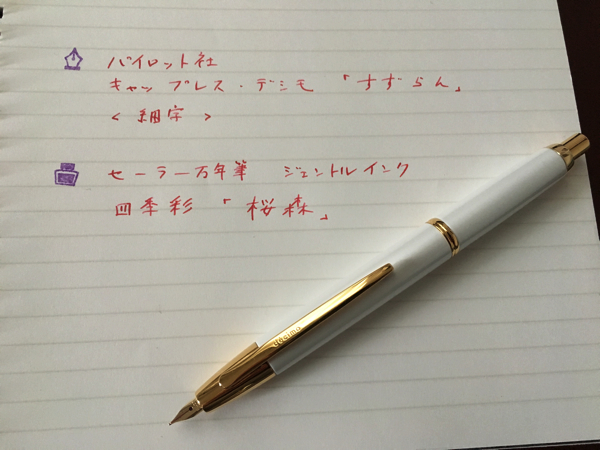 パイロット社
キャップレス・デシモ 「すずらん」
< 細字 >
セーラー万年筆 ジェントルインク
四季彩 「桜森」
decimo